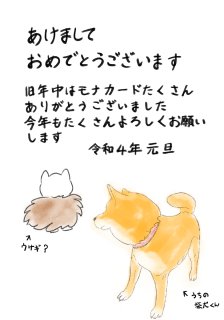 あけまして
おめでとうございます
旧年中はモナカードたくさん
ありがとうございました
今年もたくさんよろしくお願い
します
令和4年 元旦
ウサギ?
うちの
柴犬くん